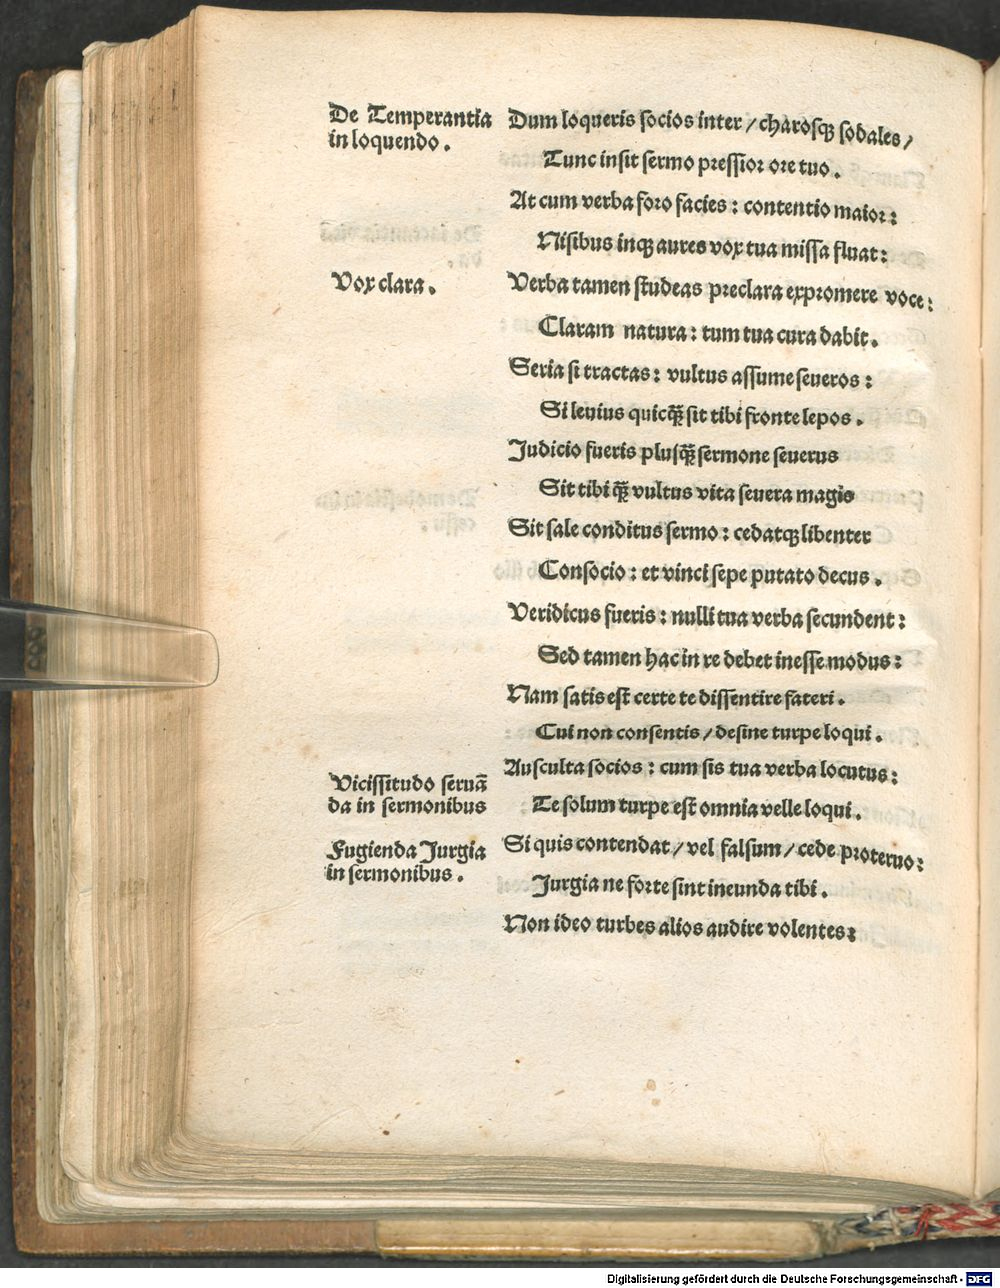 De Temperantia
in loquendo.
Dum loqueris socios inter / charosqꝫ sodales /
Tunc insit sermo pressior ore tuo.
At cum verba foro facies : contentio maior :
Nisibus inqꝫ aures vox tua missa fluat :
Vox clara.
Verba tamen studeas preclara expromere voce :
Claram natura : tum tua cura dabit.
Seria si tractas : vultus assume seueros :
Si levius quicqꝫ̃ sit tibi fronte lepos.
Judicio fueris plusqꝫ̃ sermone seuerus
Sit tibi qꝫ̃ vultus vita seuera magis
Sit sale conditus sermo : cedatqꝫ libenter
Consocio : et vinci sepe putato decus.
Veridicus fueris : nulli tua verba secundent :
Sed tamen hac in re debet inesse modus :
Nam satis est certe te dissentire fateri.
Cui non consentis / desine turpe loqui.
Vicissitudo seruā
da in sermonibus
Ausculta socios : cum sis tua verba locutus :
Te solum turpe est omnia velle loqui.
Fugienda Jurgia
in sermonibus.
Si quis contendat / vel falsum / cede proteruo :
Jurgia ne forte sint ineunda tibi.
Non ideo turbes alios audire volentes :
Digitalisierung gefördert durch die Deutsche Forschungsgemeinschaft - DFG